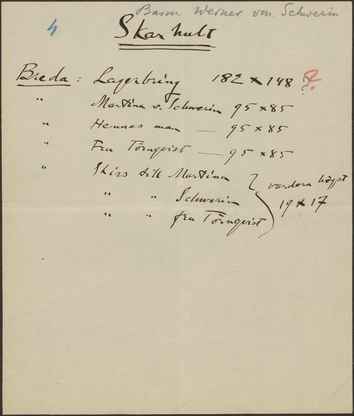 4 Baron Werner von Schwerin
Skarhult
Breda: Lagerbring 182 x 148 ?
" Martina v. Schwerin 95 x 85
" Hennes man — 95 x 85
" Fru Törnqvist — 95 x 85
" Skiss till Martina
" " Schwerin
" " fru Törnqvist
vardera högst
19 x 17